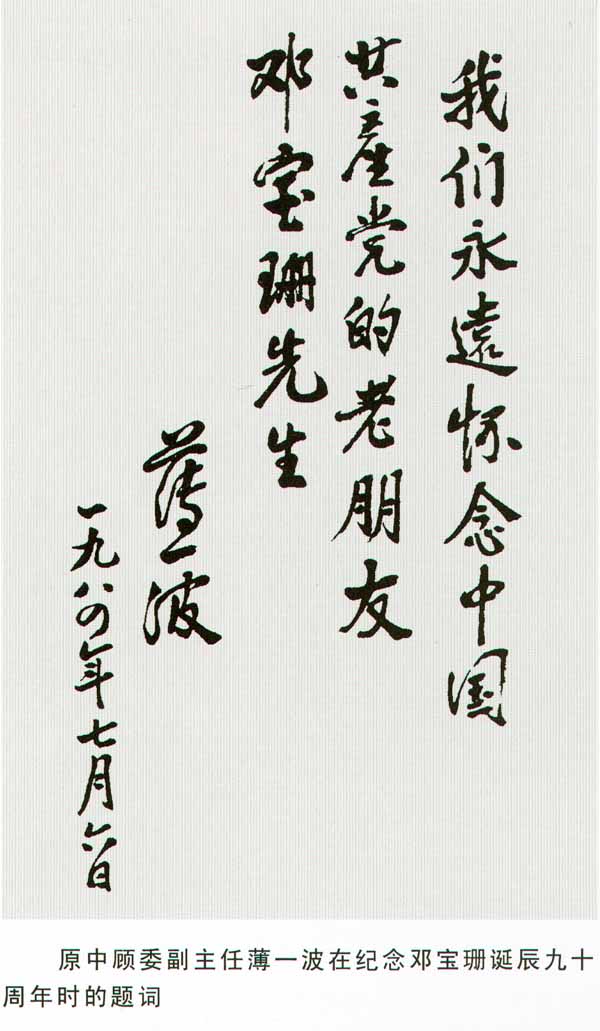 我们永遠怀念中国
共產党的老朋友
邓宝珊先生
薄一波
一九八四年七月六日
原中顾委副主任薄一波在纪念邓宝珊诞辰九十
周年时的题词